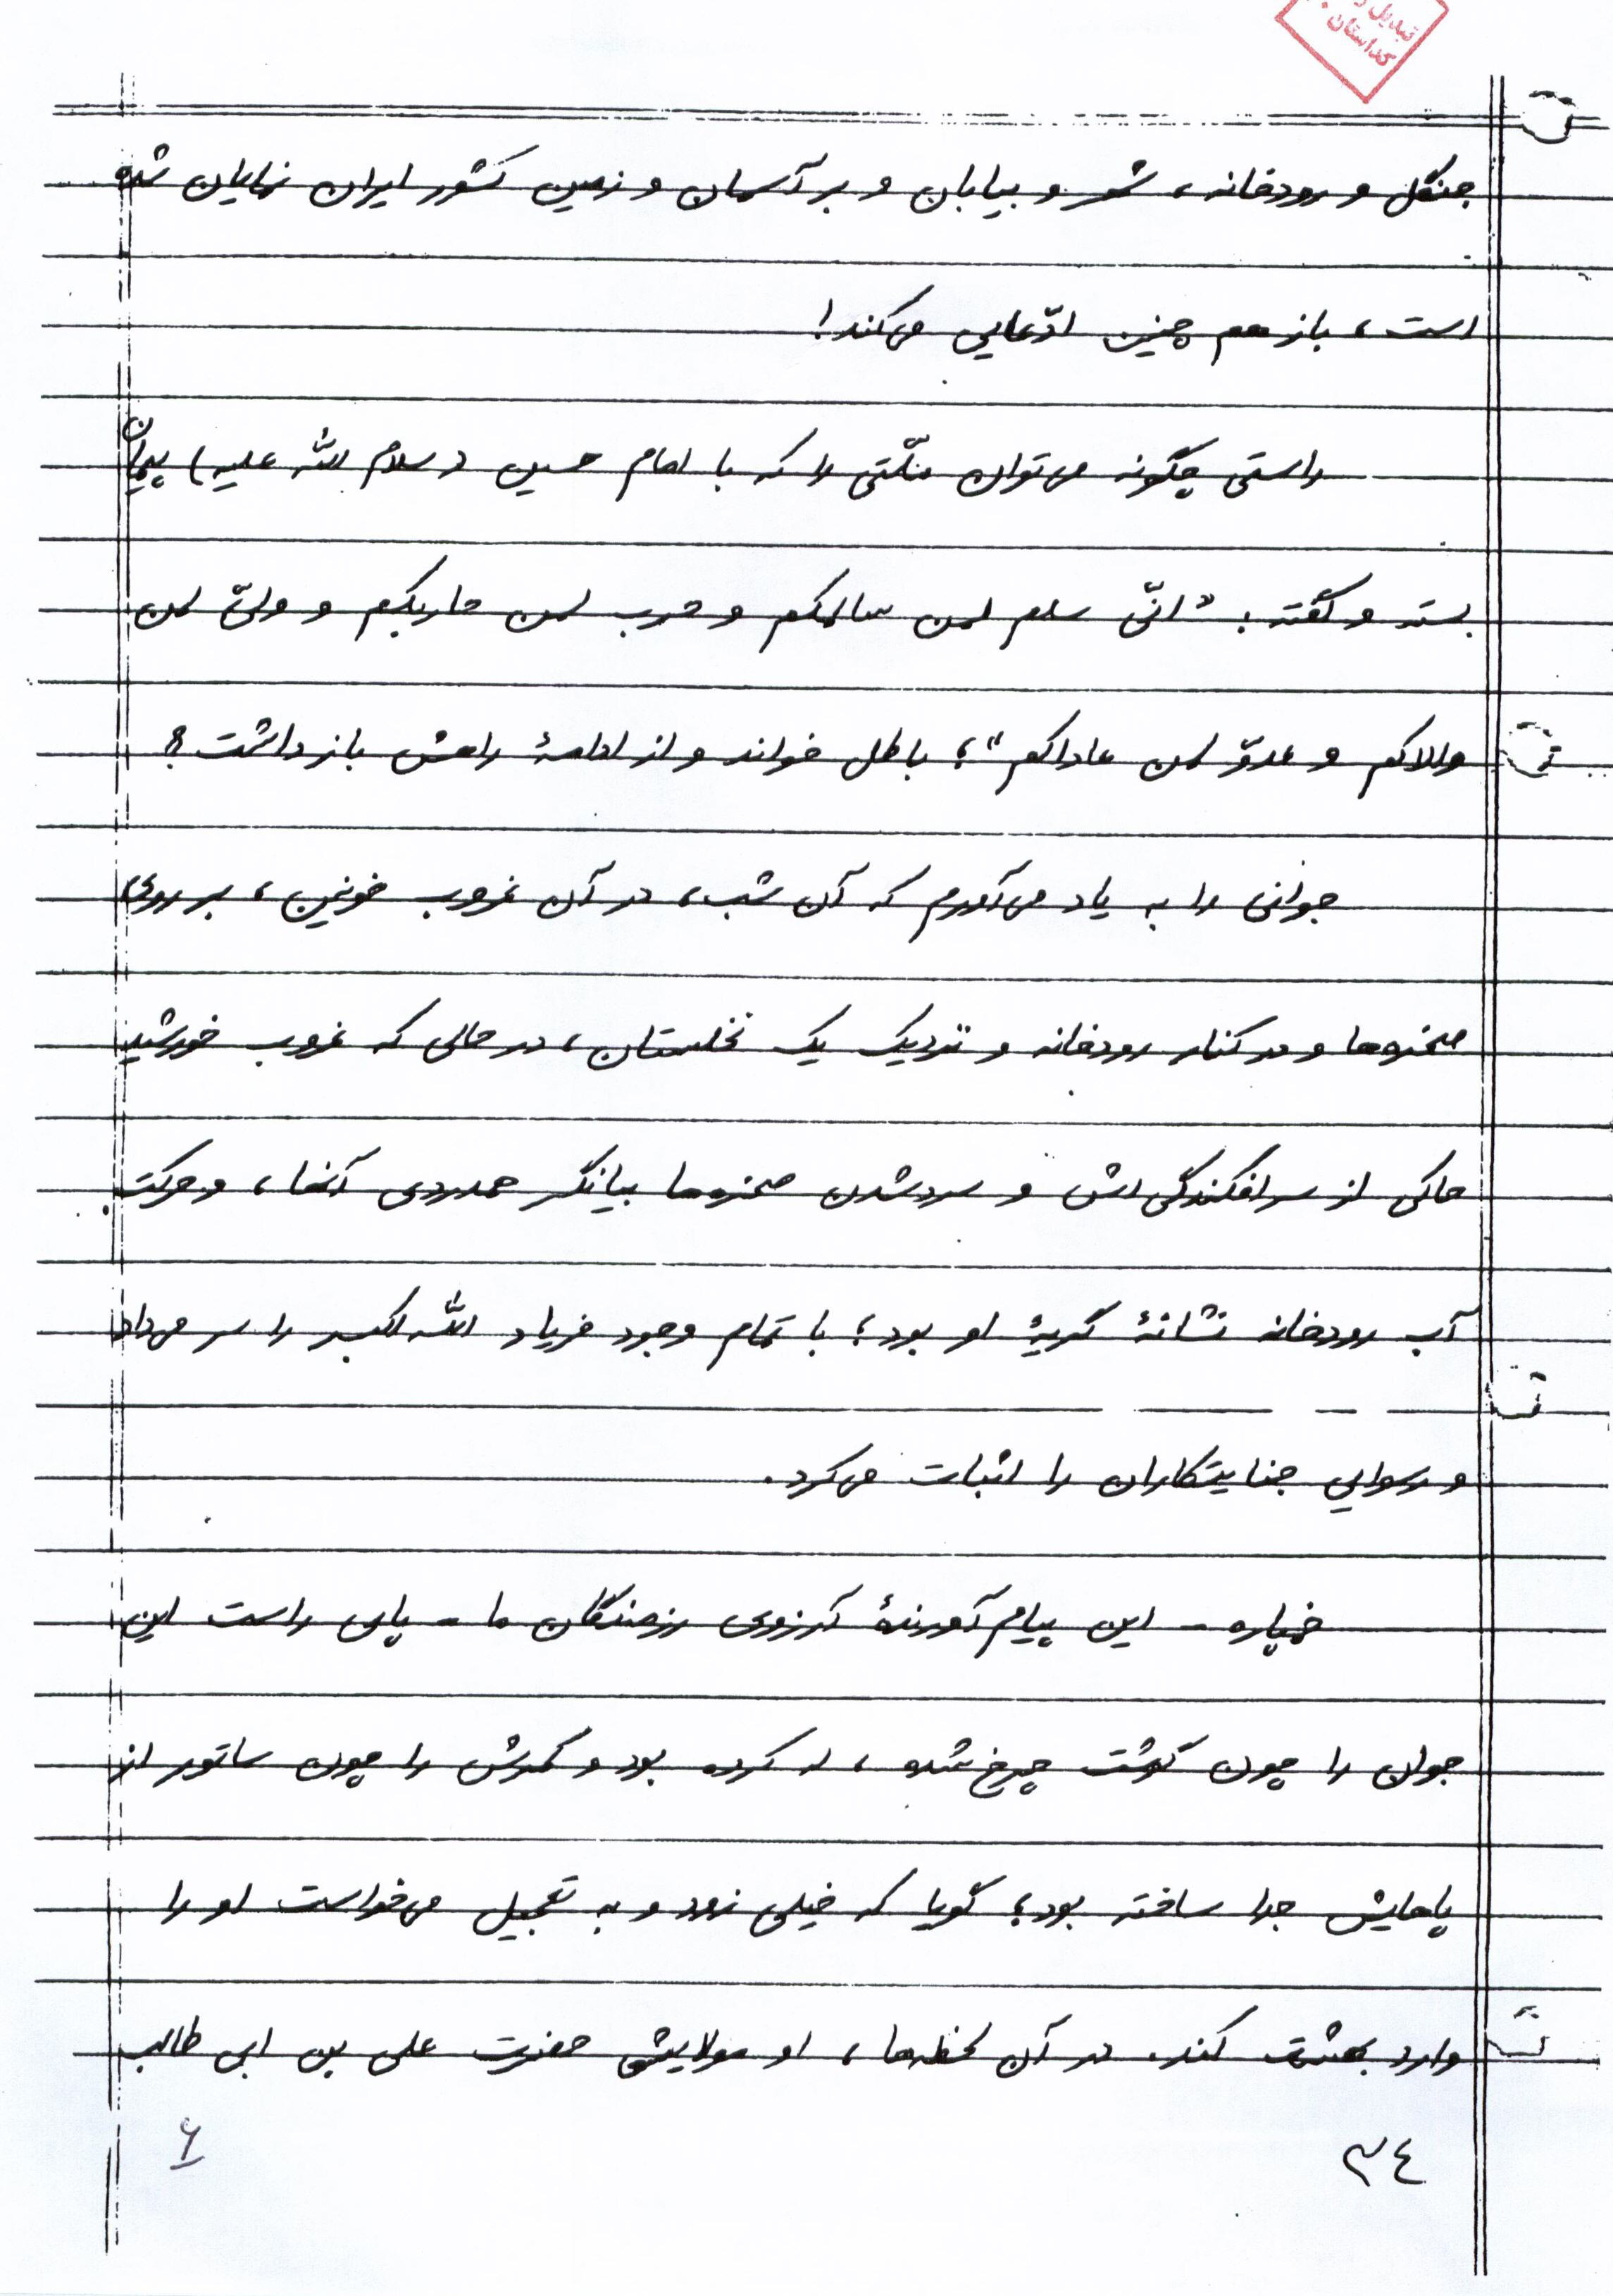 تبدیل
کداستان
جنگل و رودخانه، شهر و بیابان و بر آسمان و زمین کشور ایران نمایان شده
است، باز هم چنین ادّعایی می‌کند!
راستی چگونه می‌توان ملّتی را که با امام حسین (سلام الله علیه) پیمان
بسته و گفته: "انّی سلم لمن سالمکم و حرب لمن حاربکم و ولیّ لمن
والاکم و عدوّ لمن عاداکم"؛ باطل خواند و از ادامهٔ راهش بازداشت؟
جوانی را به یاد می‌آورم که آن شب، در آن غروب خونین، بر روی
صخره‌ها و در کنار رودخانه و نزدیک یک نخلستان، در حالی که غروب خورشید
حاکی از سرافکندگی‌اش و سرد شدن صخره‌ها بیانگر همدردی آنها، و حرکت
آب رودخانه نشانهٔ گریهٔ او بود؛ با تمام وجود فریاد الله اکبر را سر می‌داد
و رسوایی جنایتکاران را اثبات می‌کرد.
خمپاره - این پیام‌آورندهٔ آرزوی رزمندگان ما - پای راست این
جوان را چون گوشت چرخ شده، له کرده بود و کمرش را چون ساتور از
پاهایش جدا ساخته بود؛ گویا که خیلی زود و به تعجیل می‌خواست او را
وارد بهشت کند. در آن لحظه‌ها، او مولایش حضرت علی بن ابی طالب
۳٤
۶